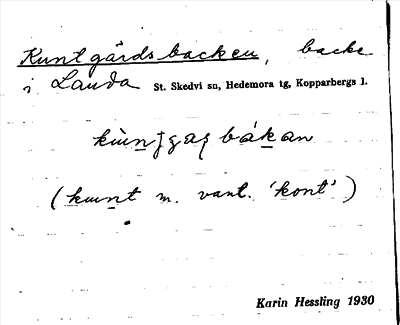 Kuntgårdsbacken, backe
i Landa St. Skedvi sn, Hedemora tg, Kopparbergs l.
(kunt m. vant. 'kont')
Karin Hessling 1930